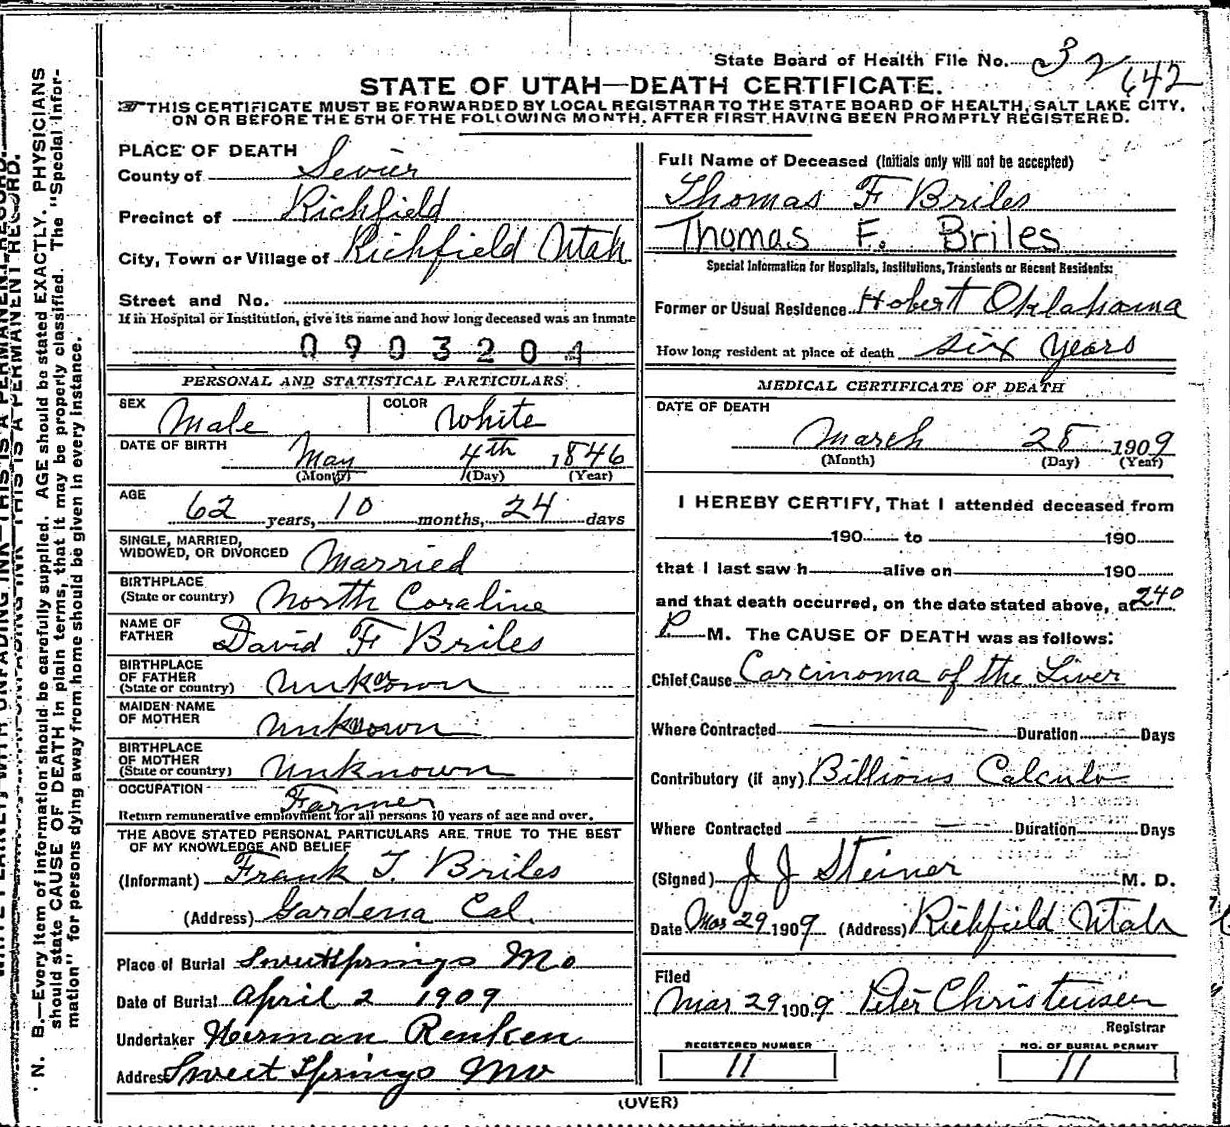 State Board of Health File No. 32
642
STATE OF UTAH—DEATH CERTIFICATE.
THIS CERTIFICATE MUST BE FORWARDED BY LOCAL REGISTRAR TO THE STATE BOARD OF HEALTH, SALT LAKE CITY,
ON OR BEFORE THE 5TH OF THE FOLLOWING MONTH, AFTER FIRST HAVING BEEN PROMPTLY REGISTERED.
PLACE OF DEATH
County of Sevier
Precinct of Richfield
City, Town or Village of Richfield Utah
Street and No.
If in Hospital or Institution, give its name and how long deceased was an inmate
0903204
PERSONAL AND STATISTICAL PARTICULARS
SEX Male COLOR White
DATE OF BIRTH May 4th 1846
(Month) (Day) (Year)
AGE 62 years, 10 months, 24 days
SINGLE, MARRIED,
WIDOWED, OR DIVORCED Married
BIRTHPLACE
(State or country) North Coraline
NAME OF
FATHER David F Briles
BIRTHPLACE
OF FATHER
(State or country) Unknown
MAIDEN NAME
OF MOTHER Unknown
BIRTHPLACE
OF MOTHER
(State or country) Unknown
OCCUPATION Farmer
Return remunerative employment for all persons 10 years of age and over.
THE ABOVE STATED PERSONAL PARTICULARS ARE TRUE TO THE BEST
OF MY KNOWLEDGE AND BELIEF
(Informant) Frank T. Briles
(Address) Gardena Cal.
Place of Burial Sweet Springs Mo
Date of Burial April 2 1909
Undertaker Herman Renken
Address Sweet Springs Mo
Full Name of Deceased (Initials only will not be accepted)
Thomas F Briles
Thomas F. Briles
Special Information for Hospitals, Institutions, Transients or Recent Residents:
Former or Usual Residence Hobert Oklahama
How long resident at place of death six years
MEDICAL CERTIFICATE OF DEATH
DATE OF DEATH
March 28 1909
(Month) (Day) (Year)
I HEREBY CERTIFY, That I attended deceased from
190 to 190
that I last saw h alive on 190
and that death occurred, on the date stated above, at 240
P. M. The CAUSE OF DEATH was as follows:
Chief Cause Carcinoma of the Liver
Where Contracted Duration Days
Contributory (if any) Billious Calculo
Where Contracted Duration Days
(Signed) J J Steiner M. D.
Date Mar 29 1909 (Address) Richfield Utah
Filed
Mar 29 1909 Peter Christensen
Registrar
REGISTERED NUMBER
11
NO. OF BURIAL PERMIT
11
(OVER)
N. B.—Every item of information should be carefully supplied. AGE should be stated EXACTLY. PHYSICIANS
should state CAUSE OF DEATH in plain terms, that it may be properly classified. The "Special Infor-
mation" for persons dying away from home should be given in every instance.
THIS IS A PERMANENT RECORD.